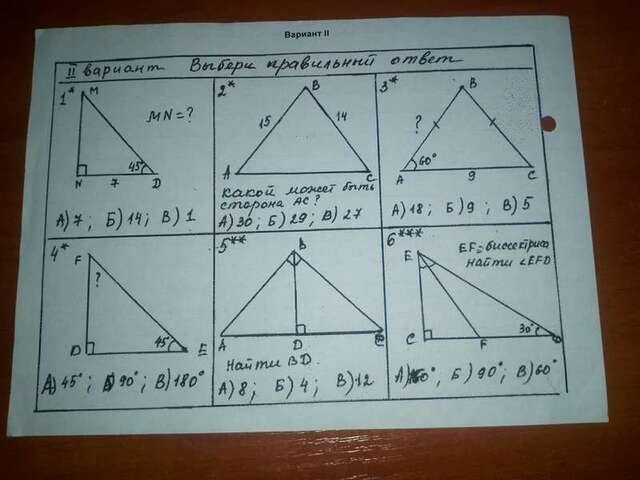 Вариант II
II вариант Выбери правильный ответ
1*
M
MN=?
45°
N 7 D
А) 7; Б) 14; В) 1
2*
B
15 14
A C
Какой может быть
сторона AC?
А) 30; Б) 29; В) 27
3*
B
?
60°
A 9 C
А) 18; Б) 9; В) 5
4*
F
?
45°
D E
А) 45°; Б) 90°; В) 180°
5**
B
A D C
Найти BD.
А) 8; Б) 4; В) 12
6***
EF=биссектриса
Найти ∠EFD
E
30°
C F D
Б) 90°; В) 60°